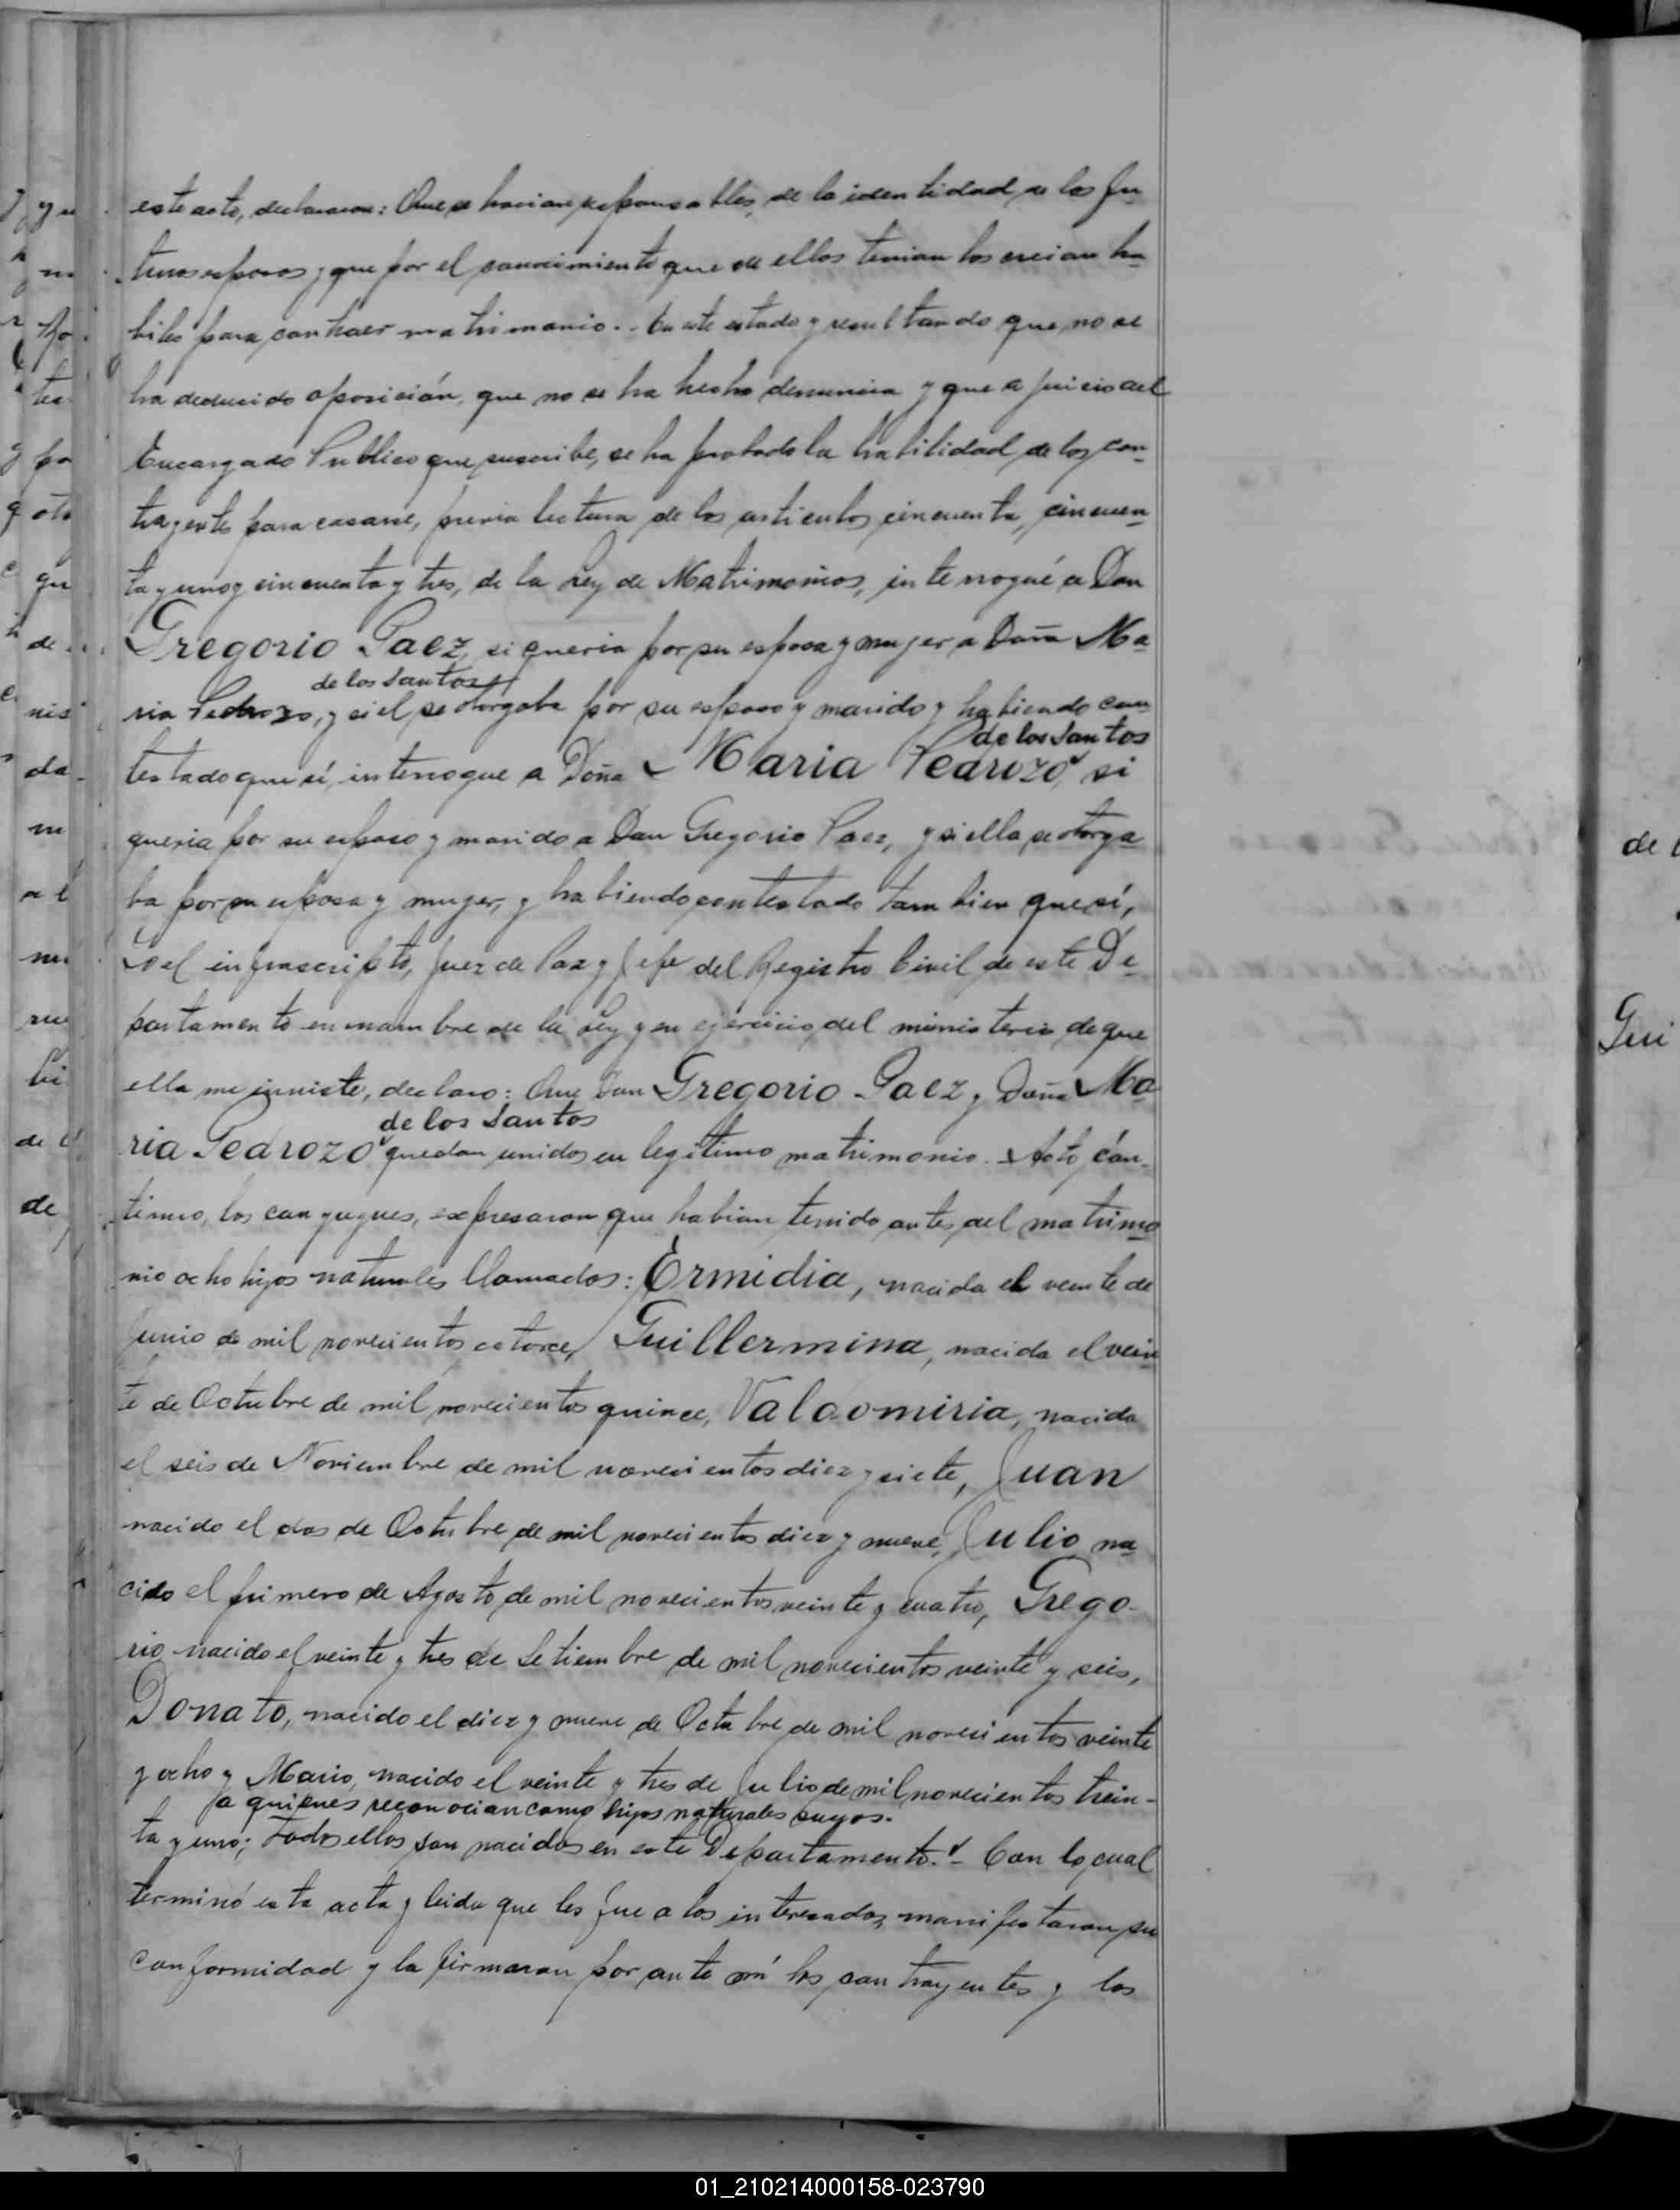 este acto, declararon: Que se hacian responsables de la identidad de los fu-
turos esposos y que por el conocimiento que de ellos tenian los creian ha-
biles para contraer matrimonio.- En este estado y resultando que no se
ha deducido oposición, que no se ha hecho denuncia y que a juicio del
Encargado Publico que suscribe, se ha probado la habilidad de los con-
trayentes para casarse, previa lectura de los articulos cincuenta, cincuen-
ta y uno y cincuenta y tres, de la Ley de Matrimonios, interrogué a Don
Gregorio Paez, si queria por su esposa y mujer a Doña Ma-
de los Santos
ria Pedrozo, y si el se otorgaba por su esposo y marido y habiendo con-
de los Santos
testado que sí, interrogue a Doña Maria Pedrozo, si
queria por su esposo y marido a Don Gregorio Paez, y si ella se otorga-
ba por su esposa y mujer, y habiendo contestado tambien que sí,
Yo el infrascripto, Juez de Paz y Jefe del Registro Civil de este De-
partamento en nombre de la Ley y en ejercicio del ministerio de que
ella me inviste, declaro: Que Don Gregorio Paez y Doña Ma-
de los Santos
ria Pedrozo quedan unidos en legítimo matrimonio.- Acto cón-
tinuo, los conyugues, expresaron que habian tenido antes del matrimo-
nio ocho hijos naturales llamados: Ermidia, nacida el veinte de
Junio de mil novecientos catorce, Guillermina, nacida el vein-
te de Octubre de mil novecientos quince, Valdomiria, nacida
el seis de Noviembre de mil novecientos diez y siete, Juan
nacido el dos de Octubre de mil novecientos diez y nueve, Julio na-
cido el primero de Agosto de mil novecientos veinte y cuatro, Grego-
rio nacido el veinte y tres de Setiembre de mil novecientos veinte y seis,
Donato, nacido el diez y nueve de Octubre de mil novecientos veinte
y ocho y Mario, nacido el veinte y tres de Julio de mil novecientos trein-
a quienes reconocian como hijos naturales suyos.
ta y uno; todos ellos son nacidos en este Departamento.- Con lo cual
terminó esta acta y leida que les fue a los interesados, manifestaron su
conformidad y la firmaron por ante mí los contrayentes y los
de
Gui
01_210214000158-023790